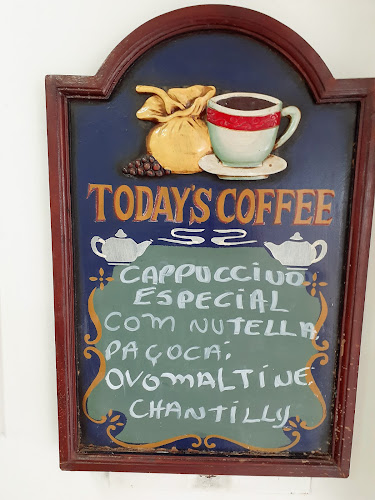 TODAY'S COFFEE
CAPPUCCINO
ESPECIAL
COM NUTELLA,
PAÇOCA,
OVOMALTINE
CHANTILLY